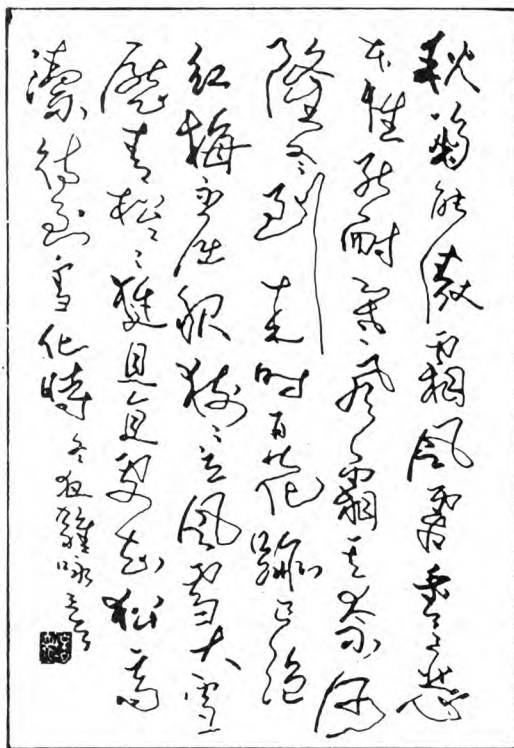 秋菊能傲霜風霜重重惡
本性能耐寒風霜其奈何
隆冬到来时百花跡已绝
红梅不屈服树〻立風雪大雪
壓青松〻挺且直要知松高
潔待到雪化時 冬夜雜咏